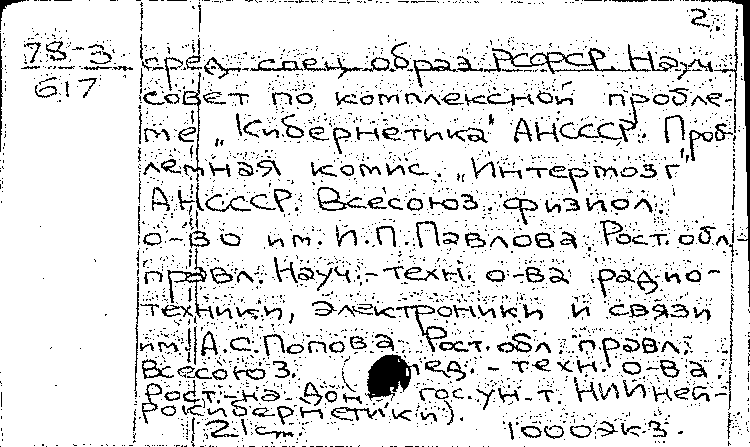 2.
78-3
617
сред. спец. образ. РСФСР. Науч.
совет по комплексной пробле-
ме „Кибернетика" АНСССР. Проб-
лемная комис. „Интермозг"
АНСССР. Всесоюз. физиол.
о-во им. И.П.Павлова. Рост. обл.
правл. Науч.-техн. о-ва радио-
техники, электроники и связи
им. А.С.Попова. Рост. обл. правл.
Всесоюз. мед.-техн. о-ва.
Рост.-на-Дон. гос. ун-т. НИИ ней-
рокибернетики).
21 см. 1000 экз.